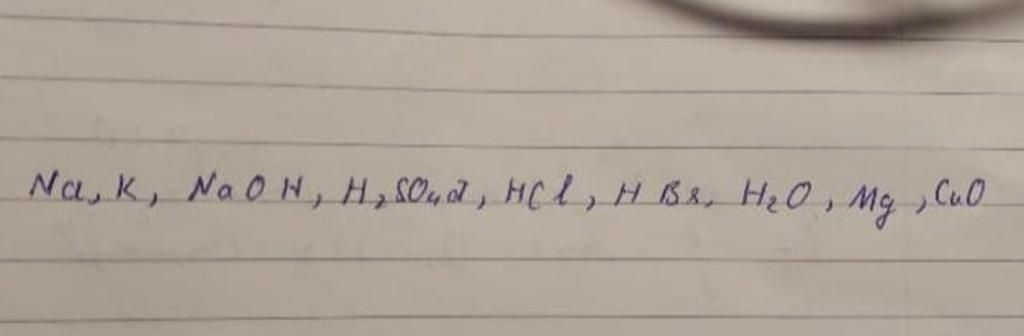 Na, K, NaOH, H₂SO₄, HCl, HBr, H₂O, Mg, CuO